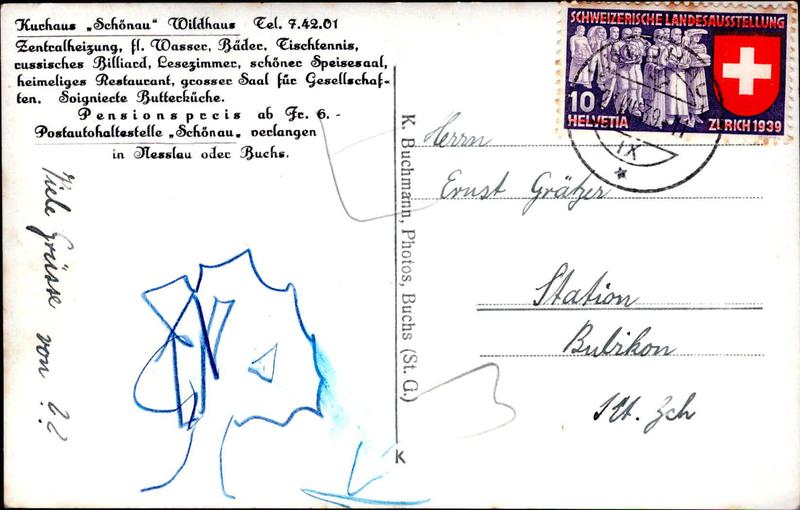 Kurhaus „Schönau" Wildhaus Tel. 7.42.01
Zentralheizung, fl. Wasser, Bäder, Tischtennis,
russisches Billiard, Lesezimmer, schöner Speisesaal,
heimeliges Restaurant, grosser Saal für Gesellschaf-
ten. Soignierte Butterküche.
Pensionspreis ab Fr. 6.-
Postautohaltestelle „Schönau" verlangen
in Nesslau oder Buchs.
Viele Grüsse von ??
K. Buchmann, Photos, Buchs (St. G.)
K
SCHWEIZERISCHE LANDESAUSSTELLUNG
10
HELVETIA ZÜRICH 1939
IX
Herrn
Ernst Grätzer
Station
Bubikon
Kt. Zch